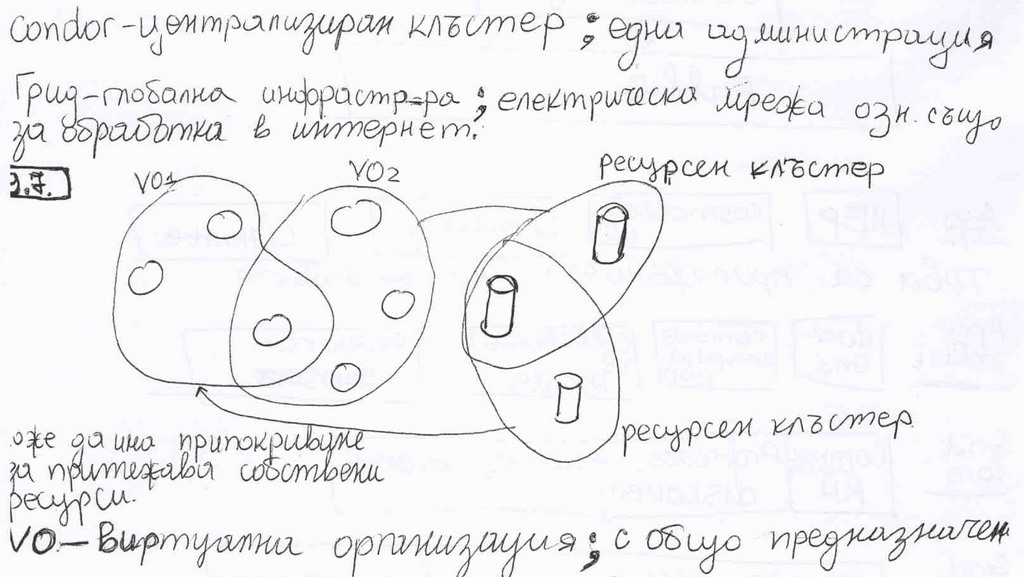 condor-централизиран клъстер ; една администрация
Грид-глобална инфрастр-ра ; електрическа мрежа озн. също
за обработка в интернет.
9.7.
VO1
VO2
ресурсен клъстер
ресурсен клъстер
оже да има припокриване
за притежава собствени
ресурси.
VO - Виртуална организация ; с общо предназначен